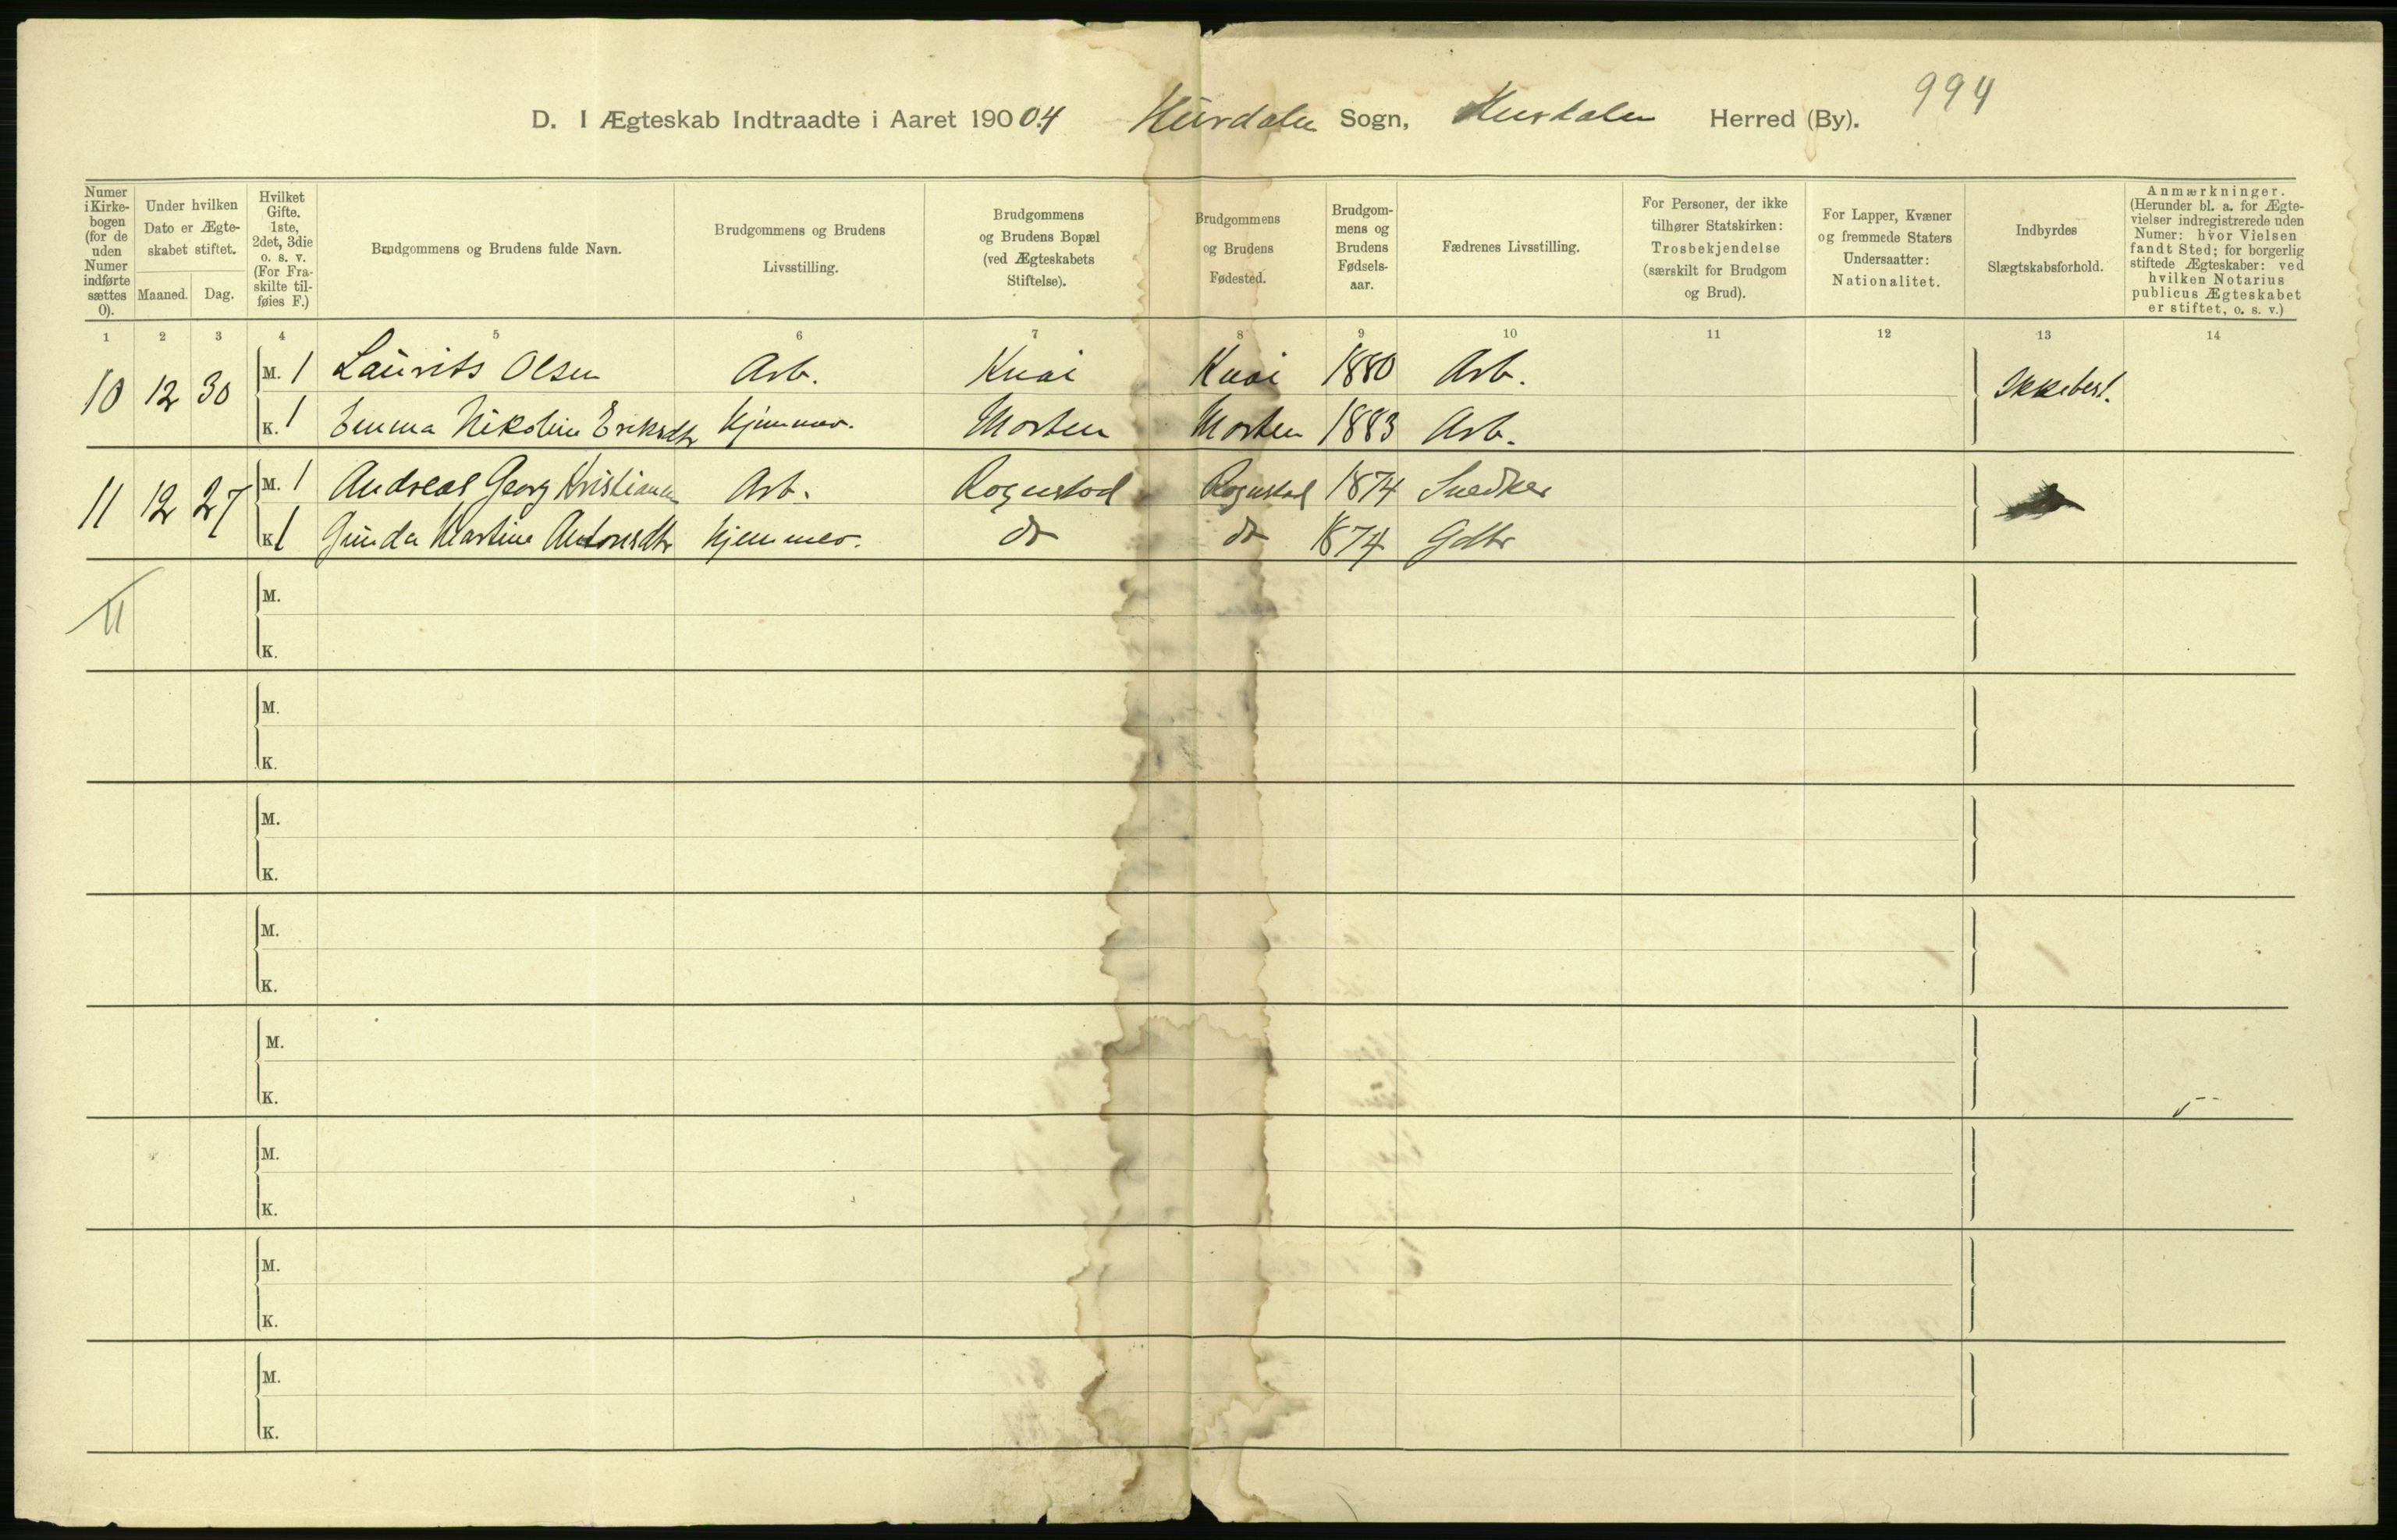 994
D. I Ægteskab Indtraadte i Aaret 190 04 Hurdalen Sogn, Hurdalen Herred (By).
Numer i Kirke-bogen (for de uden Numer indførte sættes 0).
Under hvilken Dato er Ægte-skabet stiftet.
Maaned. Dag.
Hvilket Gifte. 1ste, 2det, 3die o. s. v. (For Fra-skilte til-føies F.)
Brudgommens og Brudens fulde Navn.
Brudgommens og Brudens Livsstilling.
Brudgommens og Brudens Bopæl (ved Ægteskabets Stiftelse).
Brudgommens og Brudens Fødested.
Brudgom-mens og Brudens Fødsels-aar.
Fædrenes Livsstilling.
For Personer, der ikke tilhører Statskirken: Trosbekjendelse (særskilt for Brudgom og Brud).
For Lapper, Kvæner og fremmede Staters Undersaatter: Nationalitet.
Indbyrdes Slægtskabsforhold.
Anmærkninger. (Herunder bl. a. for Ægte-vielser indregistrerede uden Numer: hvor Vielsen fandt Sted; for borgerlig stiftede Ægteskaber: ved hvilken Notarius publicus Ægteskabet er stiftet, o. s. v.)
1 2 3 4 5 6 7 8 9 10 11 12 13 14
10 12 30 M. 1 Laurits Olsen Arb. Knai Knai 1880 Arb. Ikke besl.
K. 1 Emma Nikoline Eriksdtr Hjemmev. Morten Morten 1883 Arb.
11 12 27 M. 1 Andreas Georg Kristiansen Arb. Rognstad Rognstad 1874 Snedker
K. 1 Gunda Martine Antonsdtr Hjemmev. do do 1874 Gdbr
11 M.
K.
M.
K.
M.
K.
M.
K.
M.
K.
M.
K.
M.
K.
M.
K.